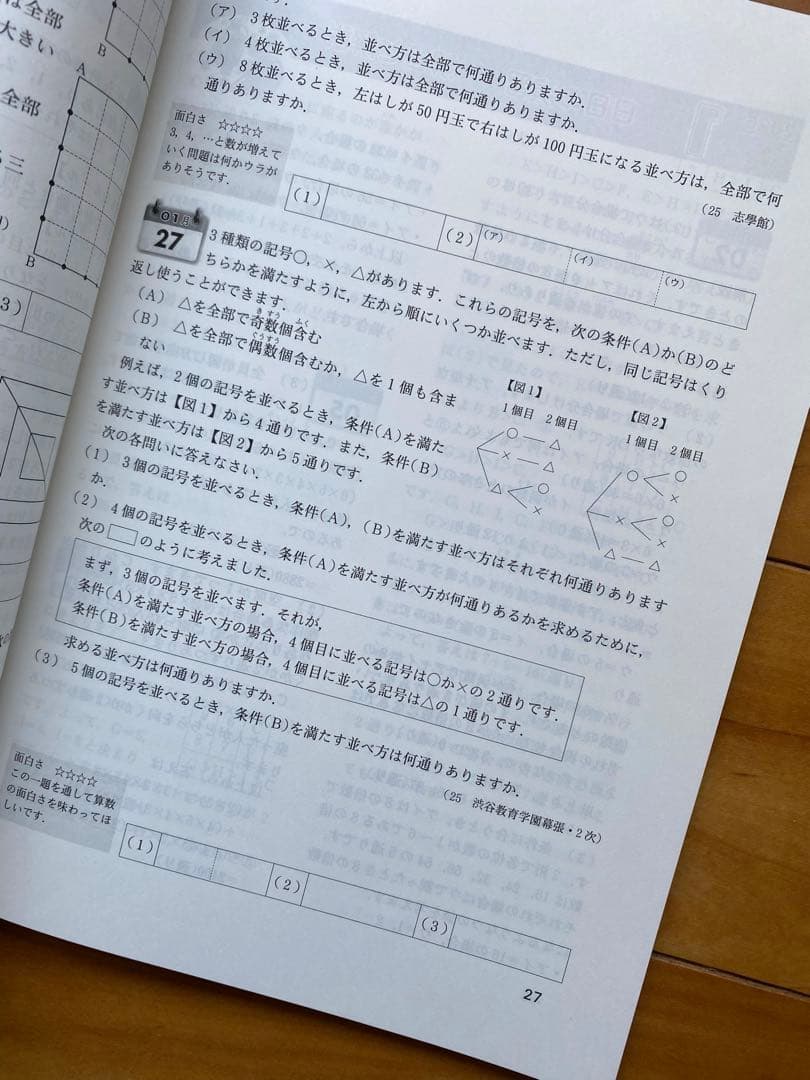 は全部
大きい
全部
三
3)
B
A
B
(ア) 3枚並べるとき，並べ方は全部で何通りありますか．
(イ) 4枚並べるとき，並べ方は全部で何通りありますか．
(ウ) 8枚並べるとき，左はしが50円玉で右はしが100円玉になる並べ方は，全部で何
通りありますか．
(25 志學館)
面白さ ☆☆☆☆
3，4，…と数が増えて
いく問題は何かウラが
ありそうです．
(1) (2) (ア) (イ) (ウ)
01月
27
3種類の記号○，×，△があります．これらの記号を，次の条件(A)か(B)のど
ちらかを満たすように，左から順にいくつか並べます．ただし，同じ記号はくり
返し使うことができます．
(A) △を全部で奇数個含む
きすう ふく
(B) △を全部で偶数個含むか，△を1個も含ま
ぐうすう
ない
例えば，2個の記号を並べるとき，条件(A)を満た
す並べ方は【図1】から4通りです．また，条件(B)
を満たす並べ方は【図2】から5通りです．
【図1】
1個目 2個目
○ △
× △
△ ○
×
【図2】
1個目 2個目
○ ○
×
× ○
×
△ △
次の各問いに答えなさい．
(1) 3個の記号を並べるとき，条件(A)，(B)を満たす並べ方はそれぞれ何通りあります
か．
(2) 4個の記号を並べるとき，条件(A)を満たす並べ方が何通りあるかを求めるために，
次の□のように考えました．
まず，3個の記号を並べます．それが，
条件(A)を満たす並べ方の場合，4個目に並べる記号は○か×の2通りです．
条件(B)を満たす並べ方の場合，4個目に並べる記号は△の1通りです．
求める並べ方は何通りありますか．
(3) 5個の記号を並べるとき，条件(B)を満たす並べ方は何通りありますか．
(25 渋谷教育学園幕張・2次)
面白さ ☆☆☆☆
この一題を通して算数
の面白さを味わってほ
しいです．
(1) (2) (3)
27